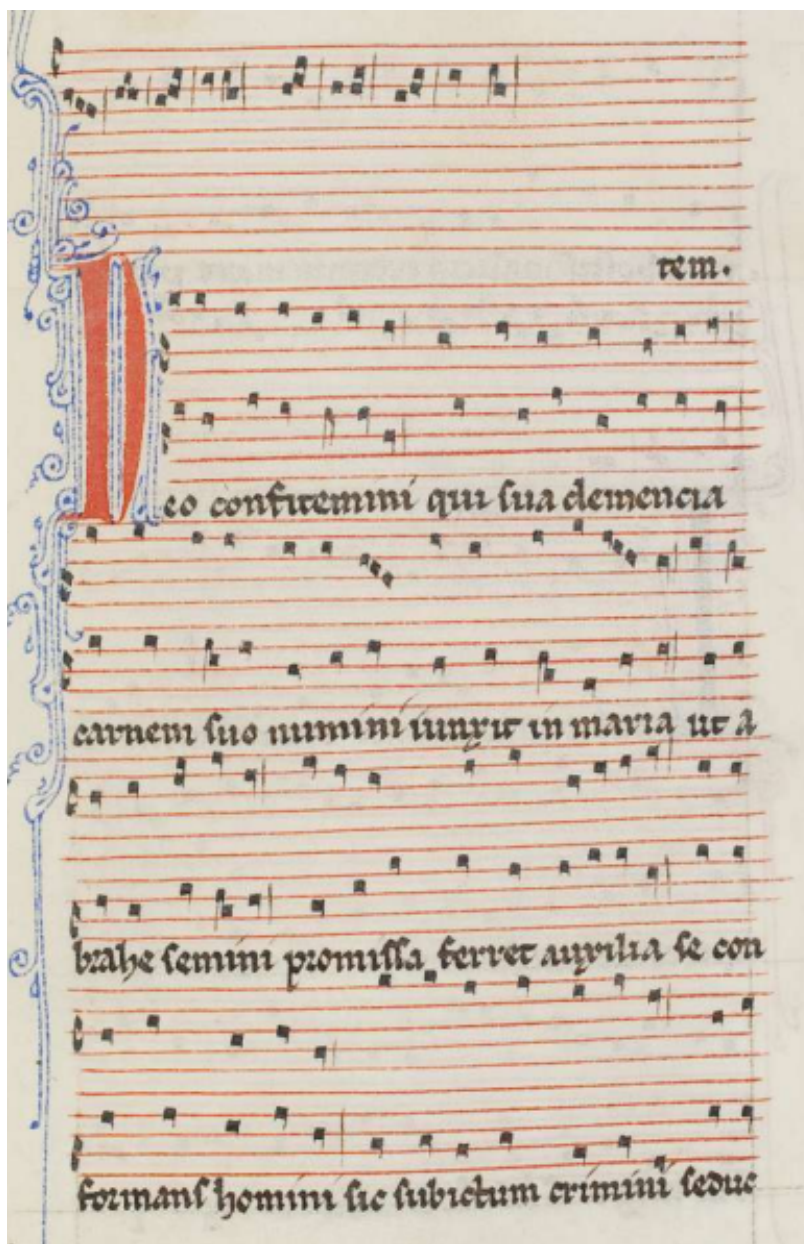 tem.
Deo confitemini qui sua clemencia
carnem suo numini iunxit in maria ut a
brahe semini promissa ferret auxilia se con
formans homini sic subiectum crimini seduc